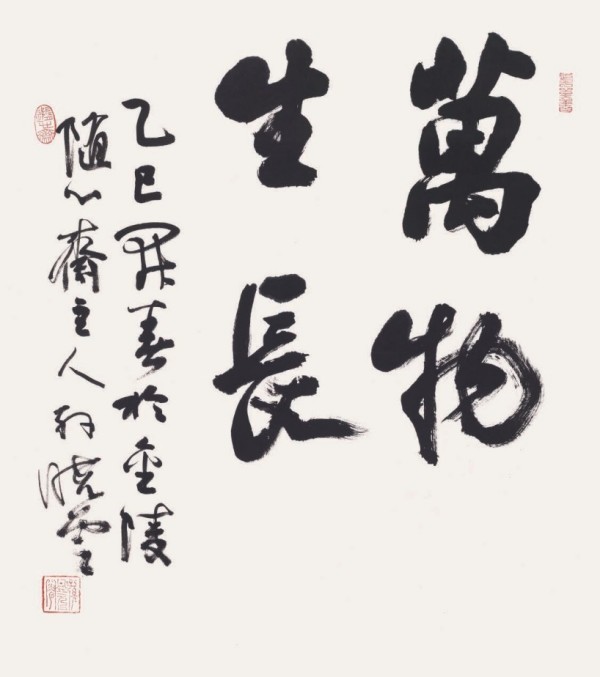 萬物
生長
乙巳開春於金陵
隨心齋主人 曉雲